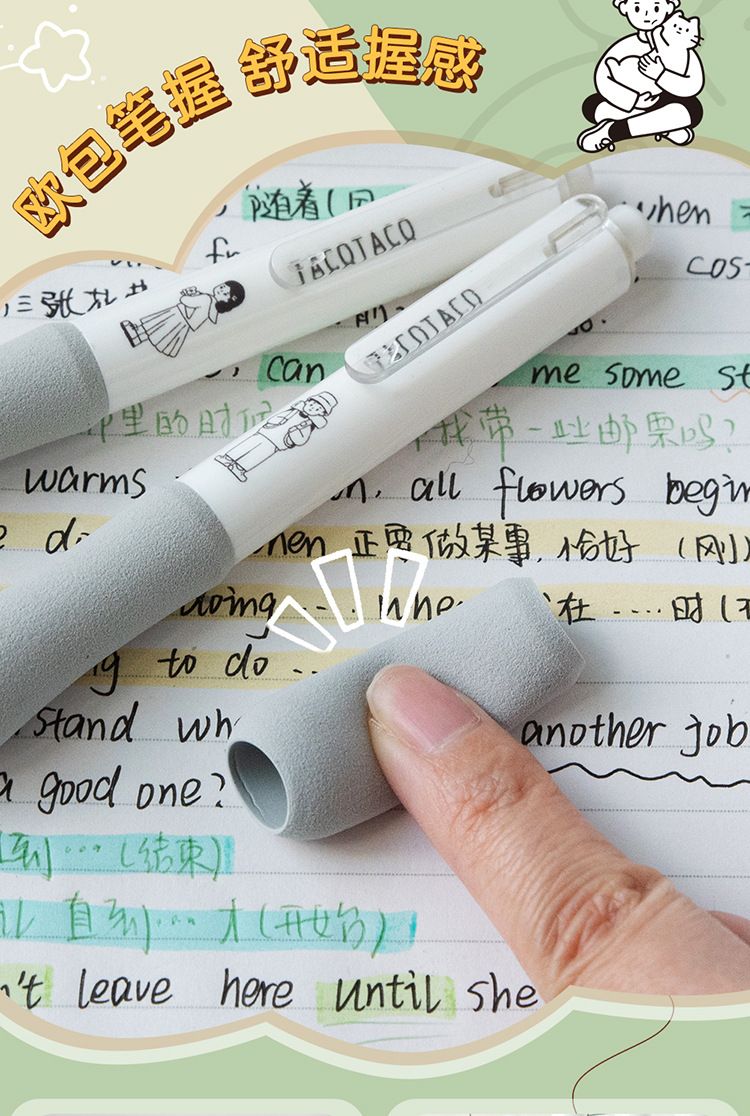 欧包笔握 舒适握感
随着(
when
TACOTACO
cos
三张
TACOTACO
can
me some st
那里的时候
我带一些邮票吗?
warms
all flowers begin
do
when 正要做某事, 恰好 (刚)
doing .... when
在 .... 时 (
to do ...
stand wh
another job
a good one?
直到 ... (结束)
直到 ... 才 (开始)
n't leave here until she